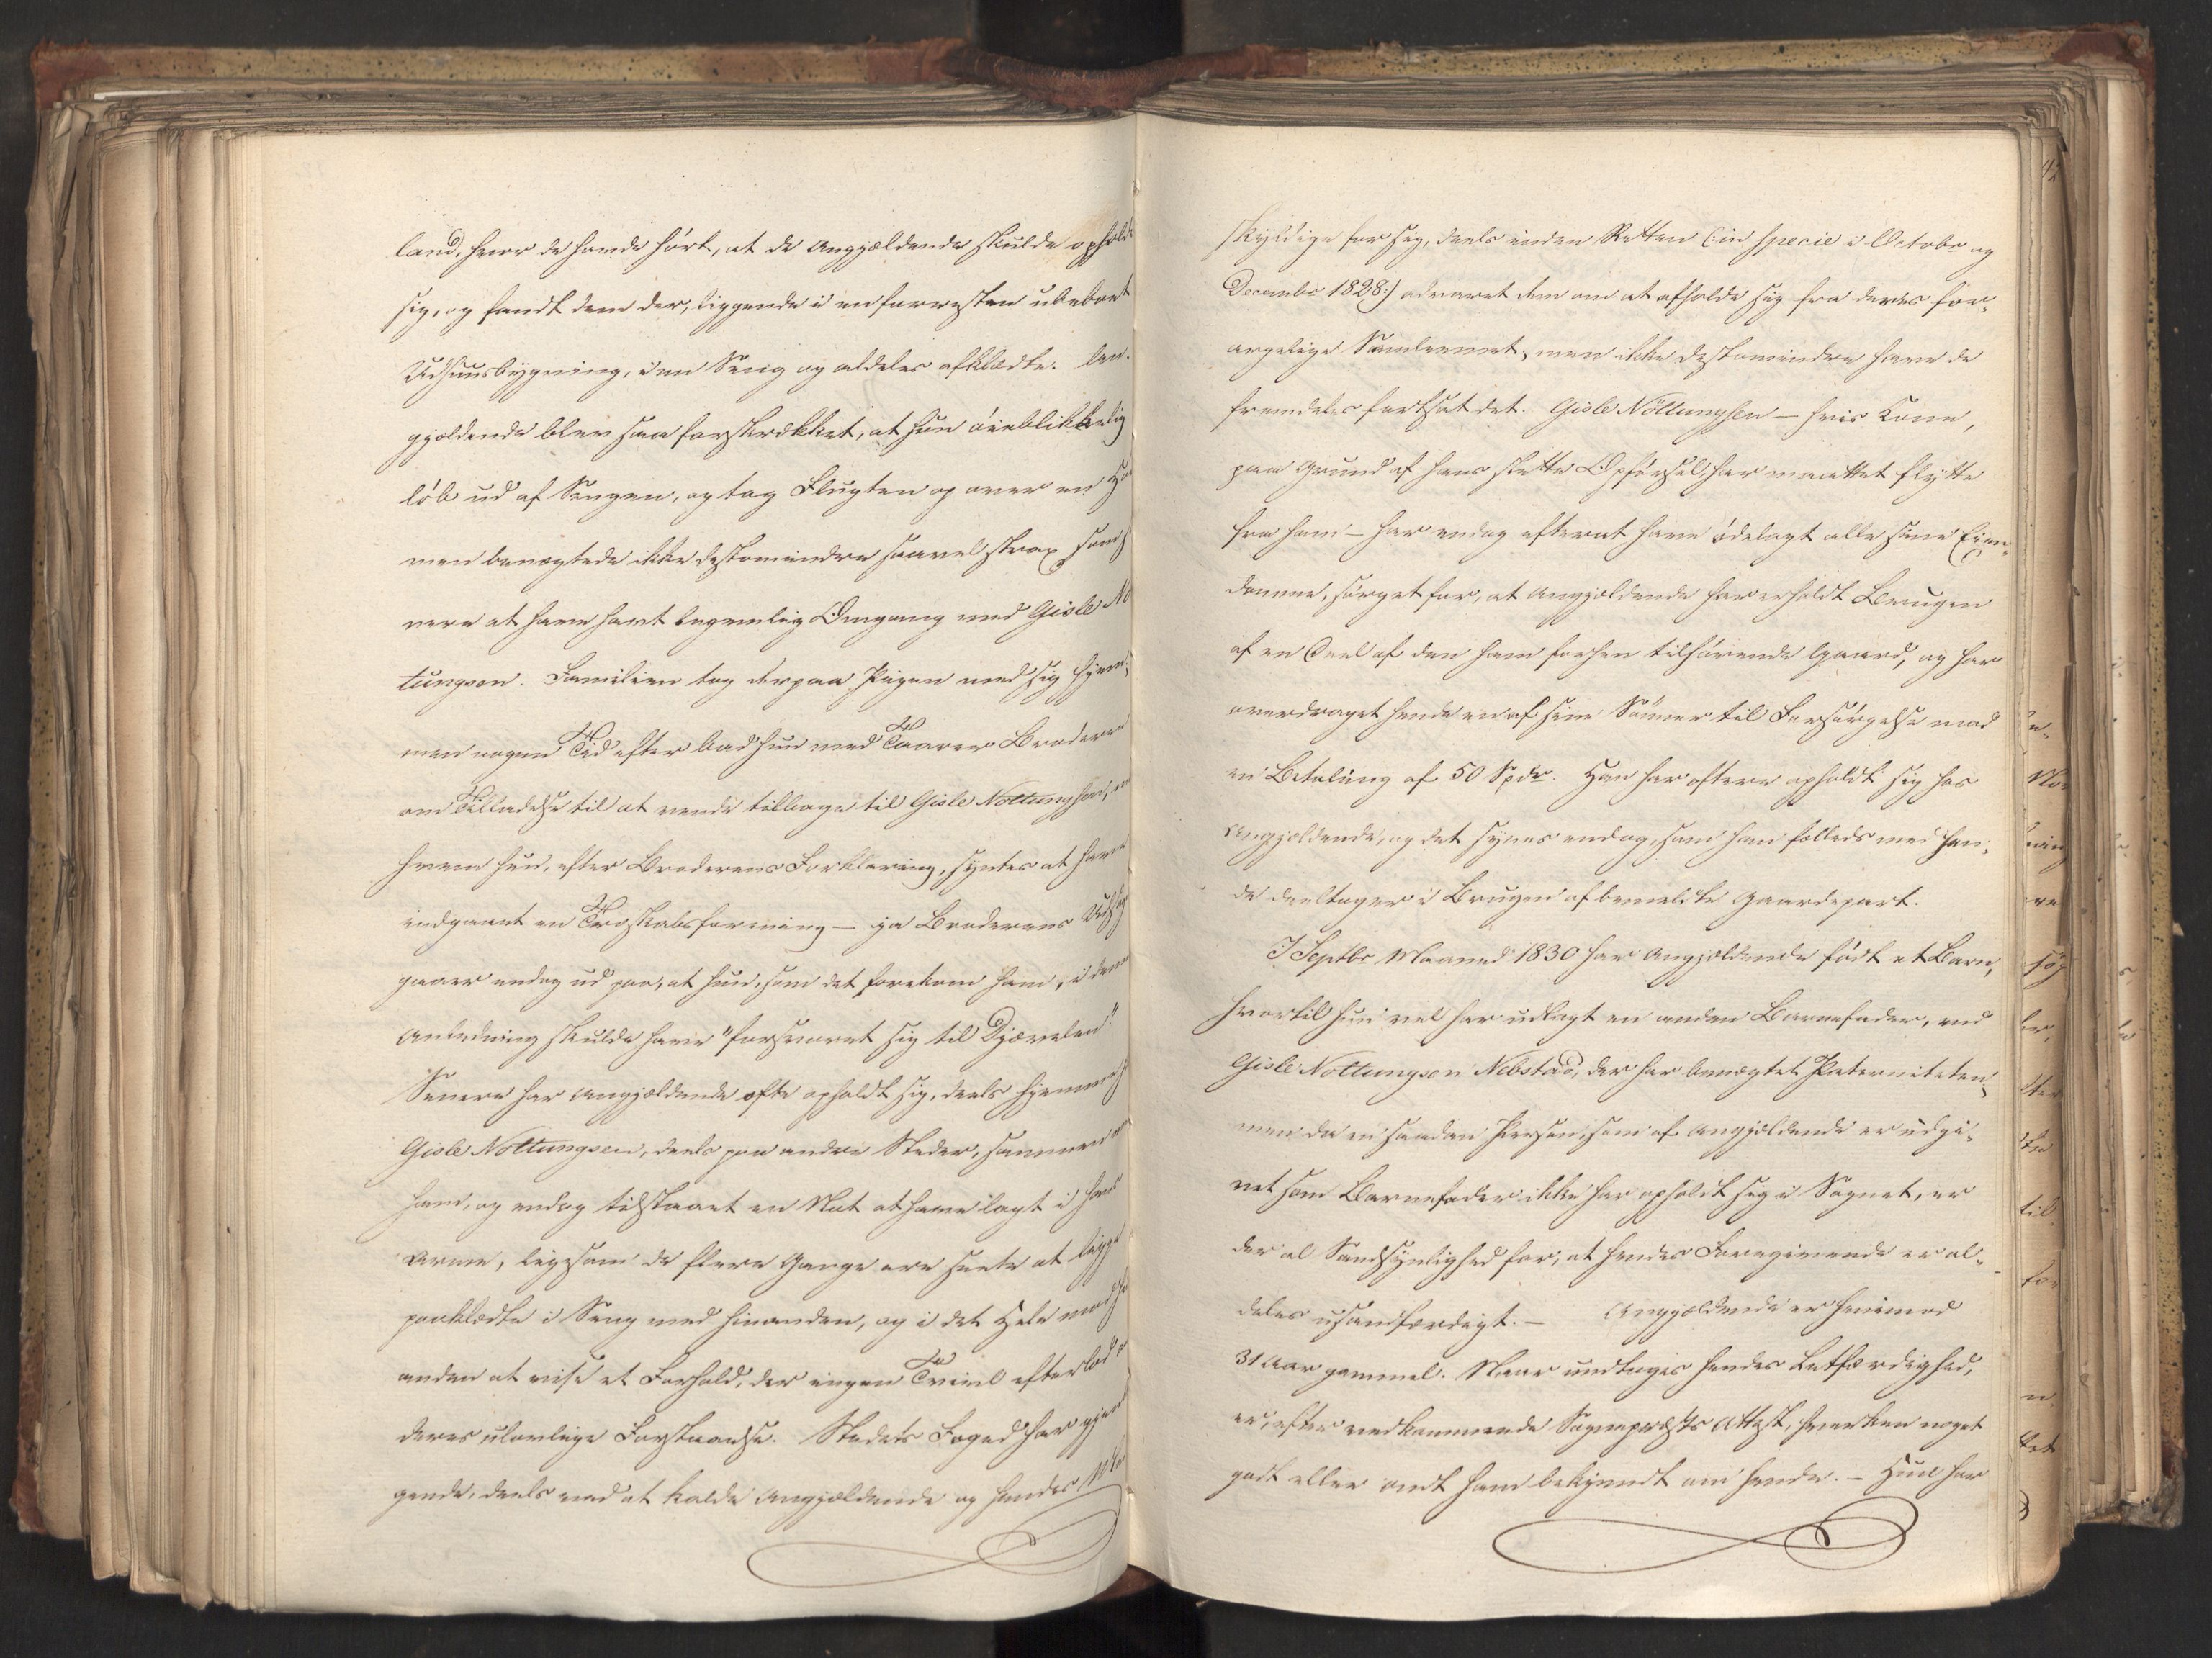 land, hvor de havde hört, at de Anggjældende skulde opholde
sig, og fandt dem der, liggende i en forresten ubeboet
Udhuusbygning, i en Seng og aldeles afklædte. An-
gjældende blev saa forskrækket, at hun öieblikkelig
löb ud af Sengen, og tog Flugten op over en
men benægtede ikke destomindre saavel strax som
nere at have havt legemlig Omgang med Gisle No
tungsen. Familien tog derpaa Pigen med sig hjem;
men nogen Tid efter bad hun med Taarer Broderen
om Tilladelse til at vende tilbage til Gisle Nottungsen,
hvem hun, efter Broderens Forklaring, syntes at have
indgaaet en Troskabsforening — ja Broderens Uds
gaaer endog ud paa, at hun, som det forekom ham, i den
Anledning skulde have "forsvoret sig til Djævelen."
Senere har Angjældende ofte opholdt sig, deels hjemme
Gisle Nottungsen, deels paa andre Steder, sammen
ham, og endog tilstaaet en Nat at have lagt i hans
Arme, ligesom de flere Gange ere seete at ligge
paaklædte i Seng med hinanden, og i det Hele
anden at vise et Forhold, der ingen Tvivl efterlod
deres ulovlige Forstaaelse. Stedets Foged har gjen
gende, deels ved at kalde Angjældende og hendes
42
skyldige for sig, deels inden Retten (in specie i Octobr og
Decembr 1828:) advaret dem om at afholde sig fra deres for-
argelige Samlevnet, men ikke destomindre have de
fremdeles fortsat det. Gisle Nöttungsen — hvis Kone,
paa Grund af hans slette Opförsel, har maattet flytte
fra ham — har endog efterat have ödelagt alle sine Eien-
domme, sörget for, at Angjældende har erholdt Brugen
af en Deel af den ham forhen tilhörende Gaard, og har
overdraget hende en af sine Sönner til Forsörgelse mod
en Betaling af 50 Spdr. Han har oftere opholdt sig hos
Angjældende, og det synes endog, som han fælleds med hen-
de deeltager i Brugen af bemeldte Gaardepart.
I Septbr Maaned 1830 har Angjældende födt et Barn,
hvortil hun vel har udlagt en anden Barnefader, end
Gisle Nottungsen Nebstad, der har benægtet Paterniteten;
men da en saadan Person, som af Angjældende er udgi-
vet som Barnefader ikke har opholdt sig i Sognet, er
der al Sandsynlighed for, at hendes Foregivende er al-
deles usandfærdigt. — Angjældende er henimod
31 Aar gammel. Naar undtages hendes Letfærdighed,
er, efter vedkommende Sognepræsts Attest, hverken noget
godt eller ondt ham bekjendt om hende. — Hun har